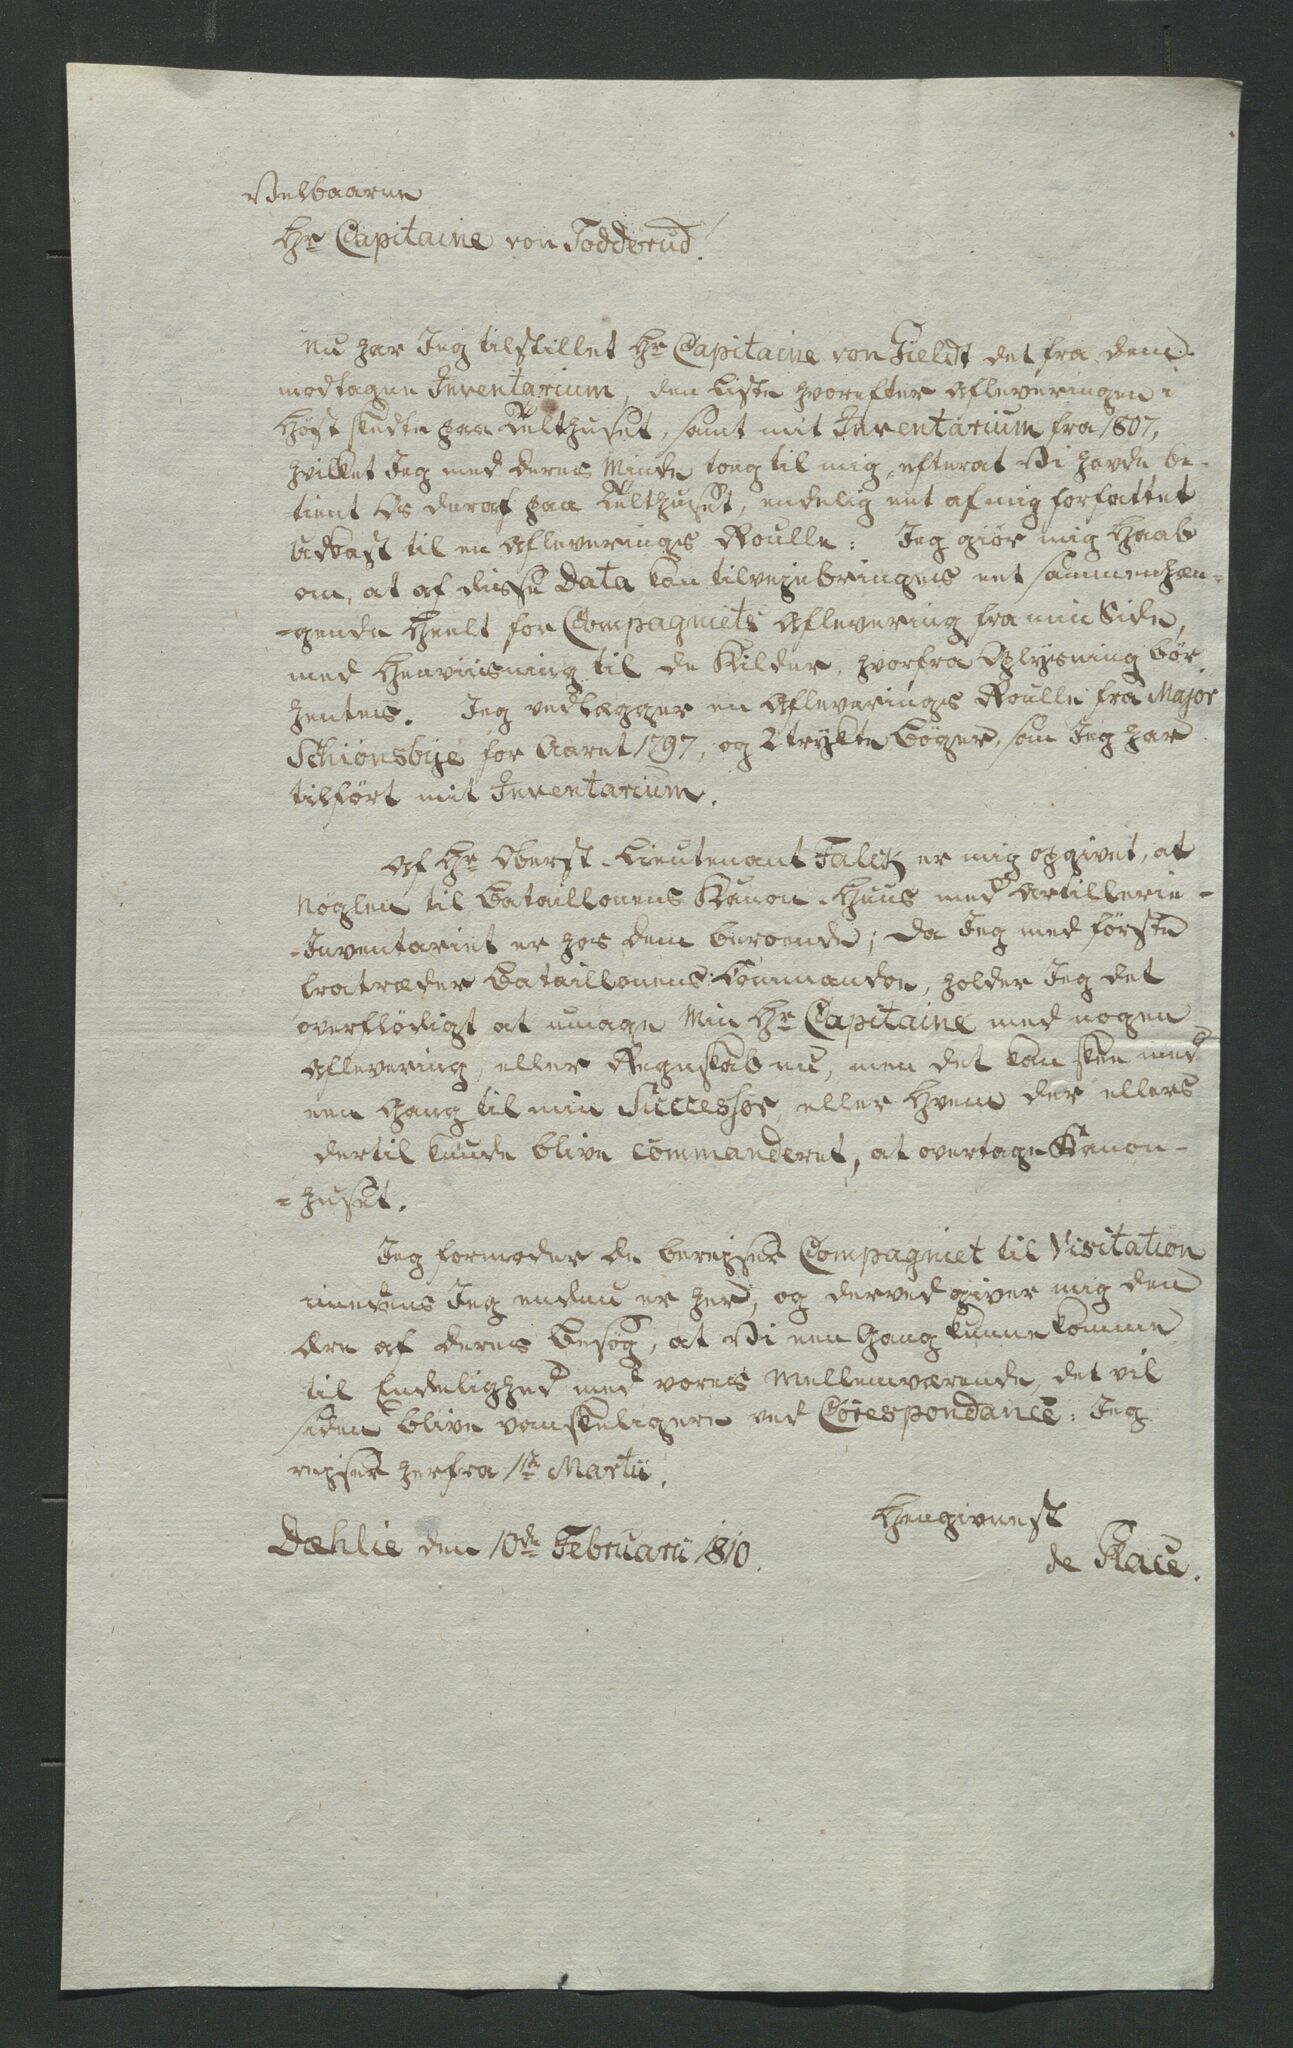 Velbaarne
Hr Capitaine von Todderud!
Nu har Jeg tilstillet Hr Capitaine von Fieldt det fra dem
modtagne Inventarium, den Liste hvorefter Afleveringen i
Høst skedte paa Telthuset, samt mit Inventarium fra 1807,
hvilket Jeg med deres Minde tog til mig, efterat Vi havde be-
tient Os deraf paa Telthuset, endelig eet af mig forfattet
Udkast til en Afleverings Roulle: Jeg giør mig Haab
om, at af disse Data kan tilvejebringes eet sammenhæn-
-gende Heelt for Compagniets Aflevering fra min Side,
med Henviisning til de Kilder, hvorfra Oplysning bør
hentes. Jeg vedlægger en Afleverings Roulle fra Major
Schiønsbye for Aaret 1797, og 2 trykte Bøger, som Jeg har
tilført mit Inventarium.
Af Hr Oberst-Lieutenant Falck er mig opgivet, at
Nøglen til Bataillonens Kanon-Huus med Artillerie-
-Inventariet er hos dem beroende; da Jeg med første
fratræder Bataillonens Commandoe, holder Jeg det
overflødigt at umage Min Hr Capitaine med nogen
Aflevering, eller Regnskab nu, men det kan skee med
een Gang til min Successor, eller Hvem der ellers
dertil kunde blive commanderet, at overtage Kanon-
-huset.
Jeg formoder De berejser Compagniet til Visitation
imedens Jeg endnu er her, og derved giver mig den
Ære af deres Besøg, at Vi een Gang kunne komme
til Endelighed med vores Mellemværende, det vil
siden blive vanskeligere ved Corespondance: Jeg
rejser herfra 1te Martii.
Hengivenst
Dæhlie den 10de Februarii 1810.
de